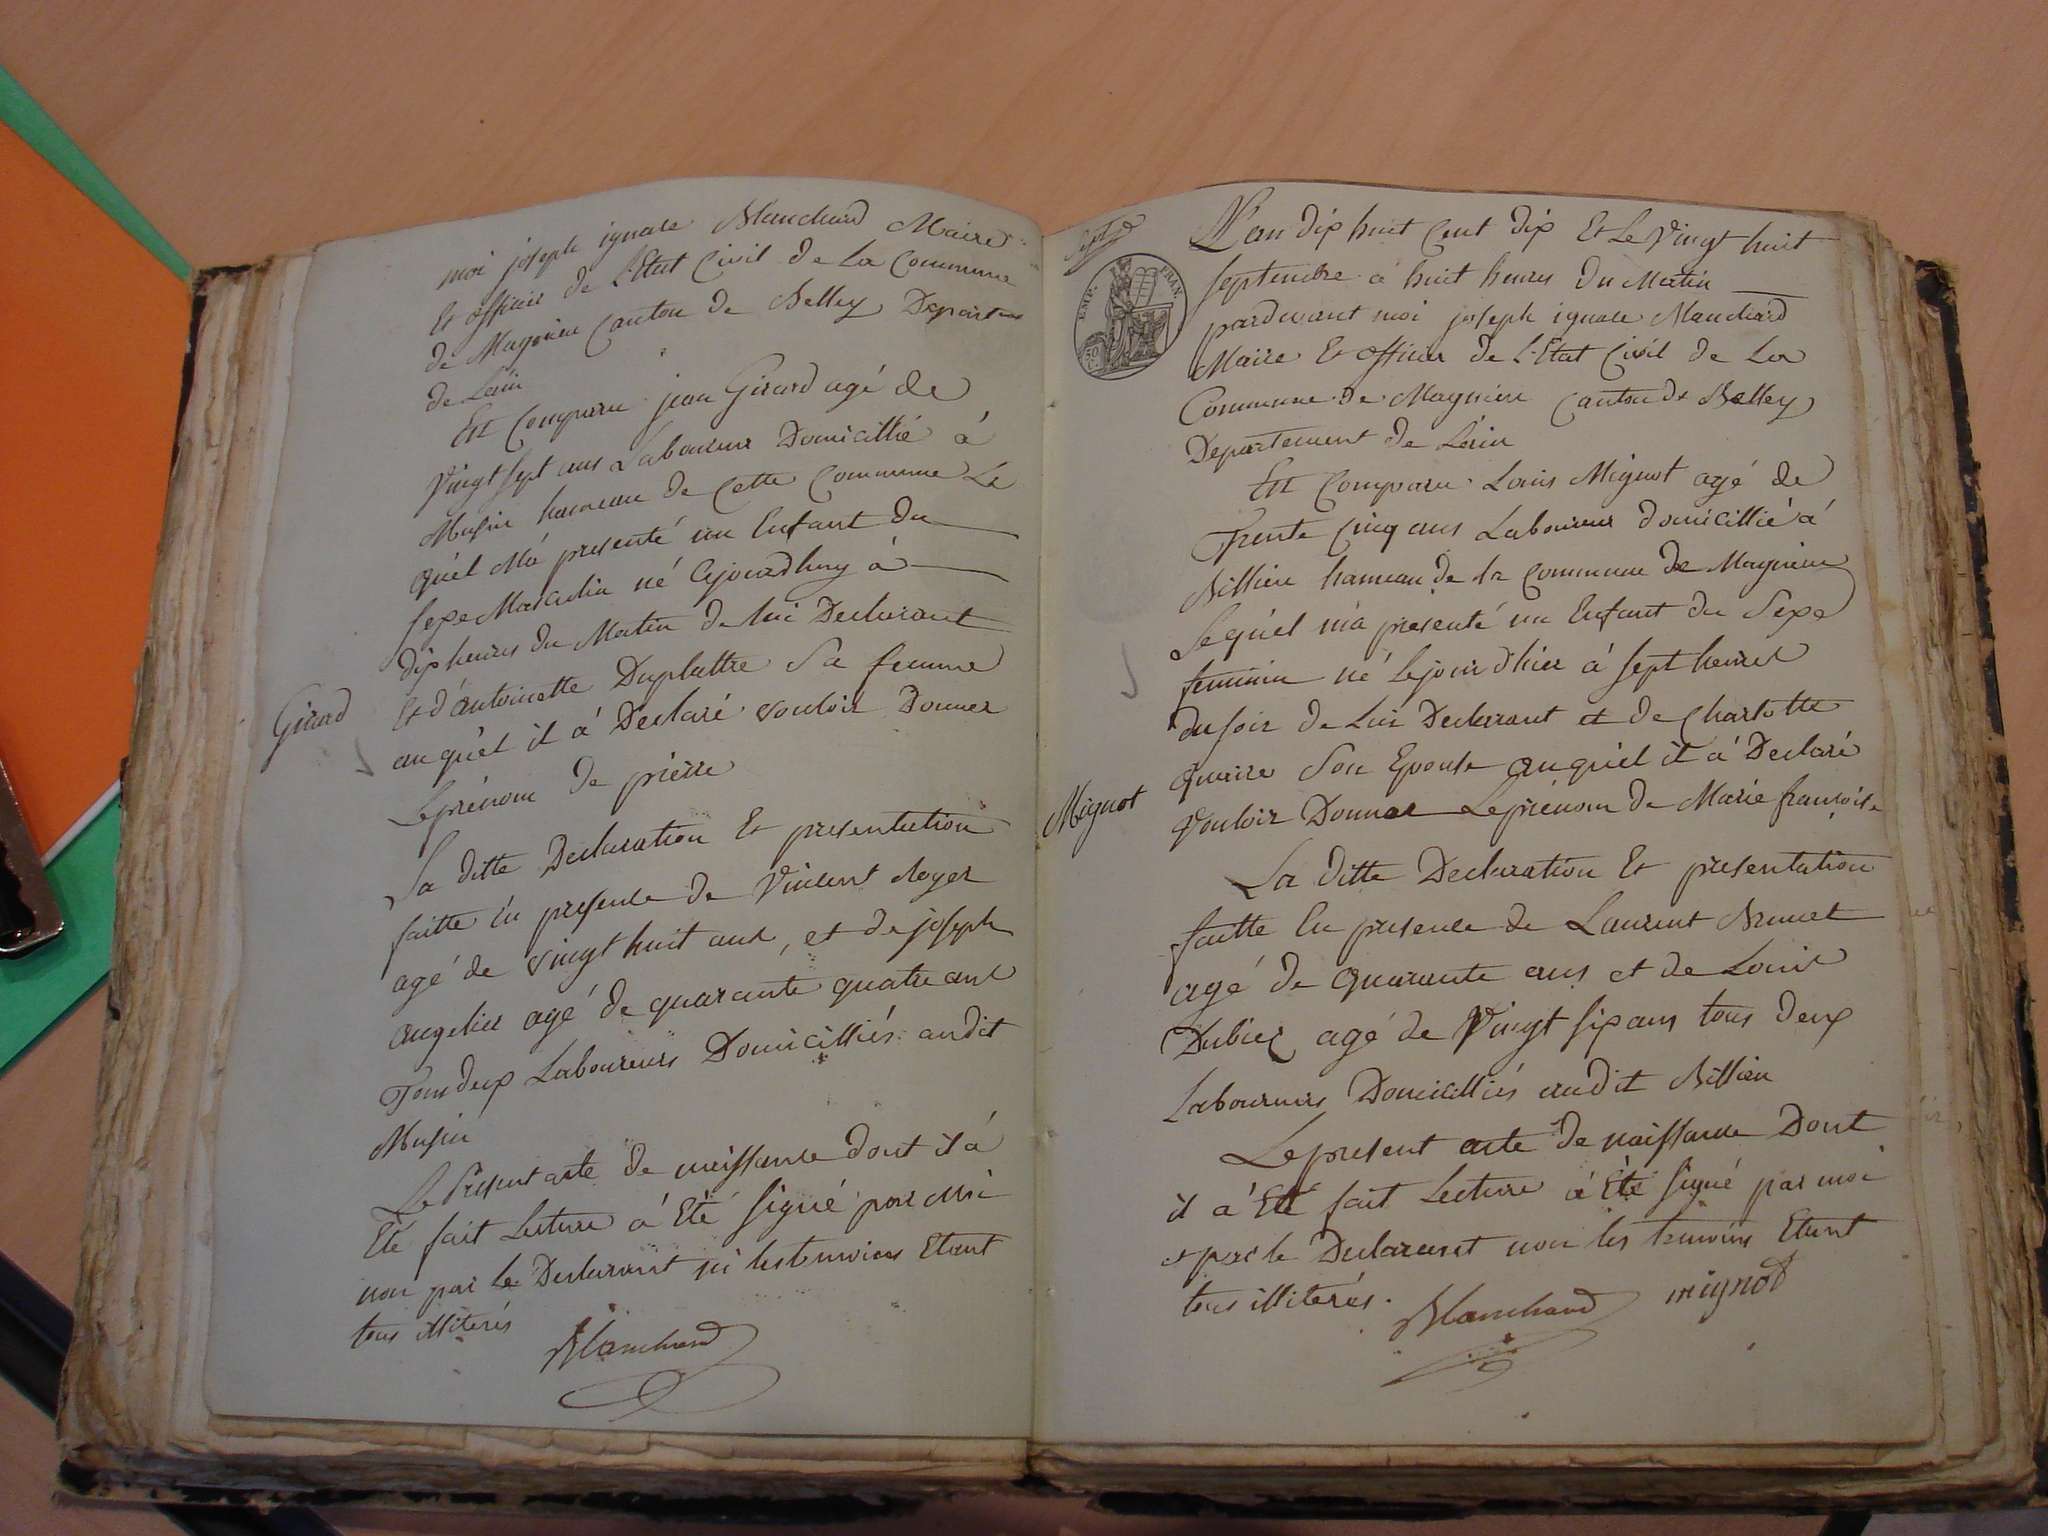 moi joseph ignace Blanchard Maire
Et officier de l'Etat Civil de La Commune
de Magnieu Canton de Belley Departem
de Lain
Est Comparu jean Girard agé de
Vingt sept ans Laboureur Domicillié à
Musin hameau de Cette Commune Le
quél M'a presenté un Enfant du
sexe Masculin né Cejourdhuy à
dix heures du Matin de lui Declarant
Et d'antoinette Duplattre Sa femme
auquél il à Declaré vouloir Donner
Leprénom de pierre
Girard
La ditte Declaration Et presentation
faitte én presence de Vincent Royer
agé de vingt huit ans, et de joseph
angelier agé de quarante quatre ans
Tous deux Laboureurs Domicilliés audit
Musin
Le Présent acte de naissance dont il à
Eté fait Lecture à Eté signé par Moi
non par le Declarant ni les temoins Etant
tous illiterés
Blanchard
EMP. FRAN.
50
L'an dix huit Cent dix Et Le Vingt huit
septembre à huit heures du Matin
pardevant moi joseph ignace Blanchard
Maire Et officier de l'Etat Civil de La
Commune de Magnieu Canton de Belley
Departement de Léain
Est Comparu Louis Mignot agé de
Trente Cinq ans Laboureur domicillié à
Billieu hameau de la Commune de Magnieu
Lequél m'a presenté un Enfant du Sexe
feminin né Lejour d'hier à sept heures
du soir de Lui Declarant et de Charlotte
Son Epouse auquél il à Declaré
Vouloir Donner Leprénom de Marie françoise
Mignot
La ditte Declaration Et presentation
faitte En presence de Laurent Brunet
agé de quarante ans et de Louis
Dubiez agé de Vingt six ans tous deux
Laboureurs Domicilliés audit Billieu
Le present acte de naissance Dont
il à Eté fait Lecture à Eté signé par moi
et par le Declarant non les temoins Etant
tous illiterés.
Blanchard mignot